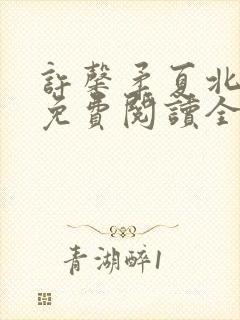 許馨矛夏北
免費閱讀全
青湖醉1